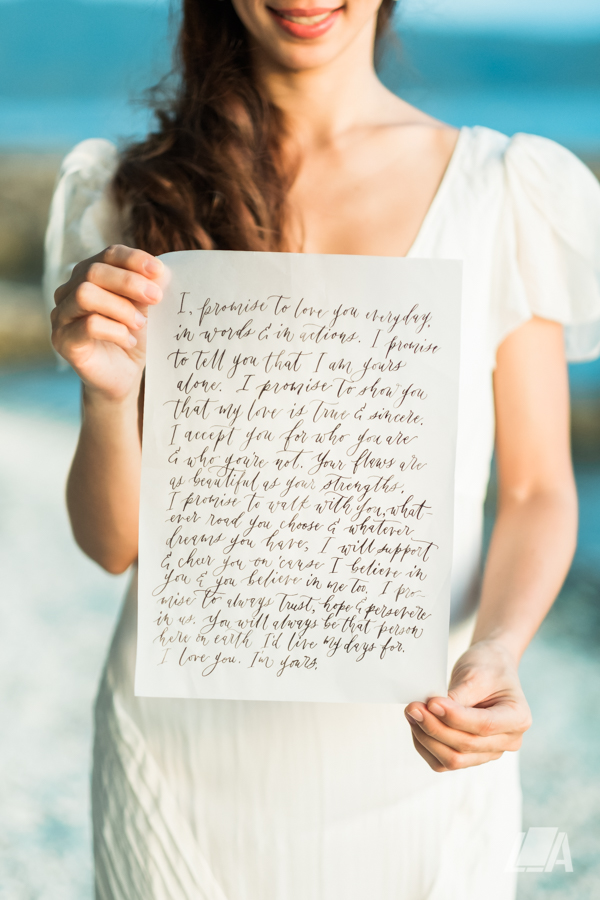 I, promise to love you everyday,
in words & in actions. I promise
to tell you that I am yours
alone. I promise to show you
that my love is true & sincere.
I accept you for who you are
& who you're not. Your flaws are
as beautiful as your strengths.
I promise to walk with you, what-
ever road you choose & whatever
dreams you have, I will support
& cheer you on 'cause I believe in
you & you believe in me too. I pro-
mise to always trust, hope & persevere
in us. You will always be that person
here on earth I'd live my days for.
I love you. I'm yours.
LA